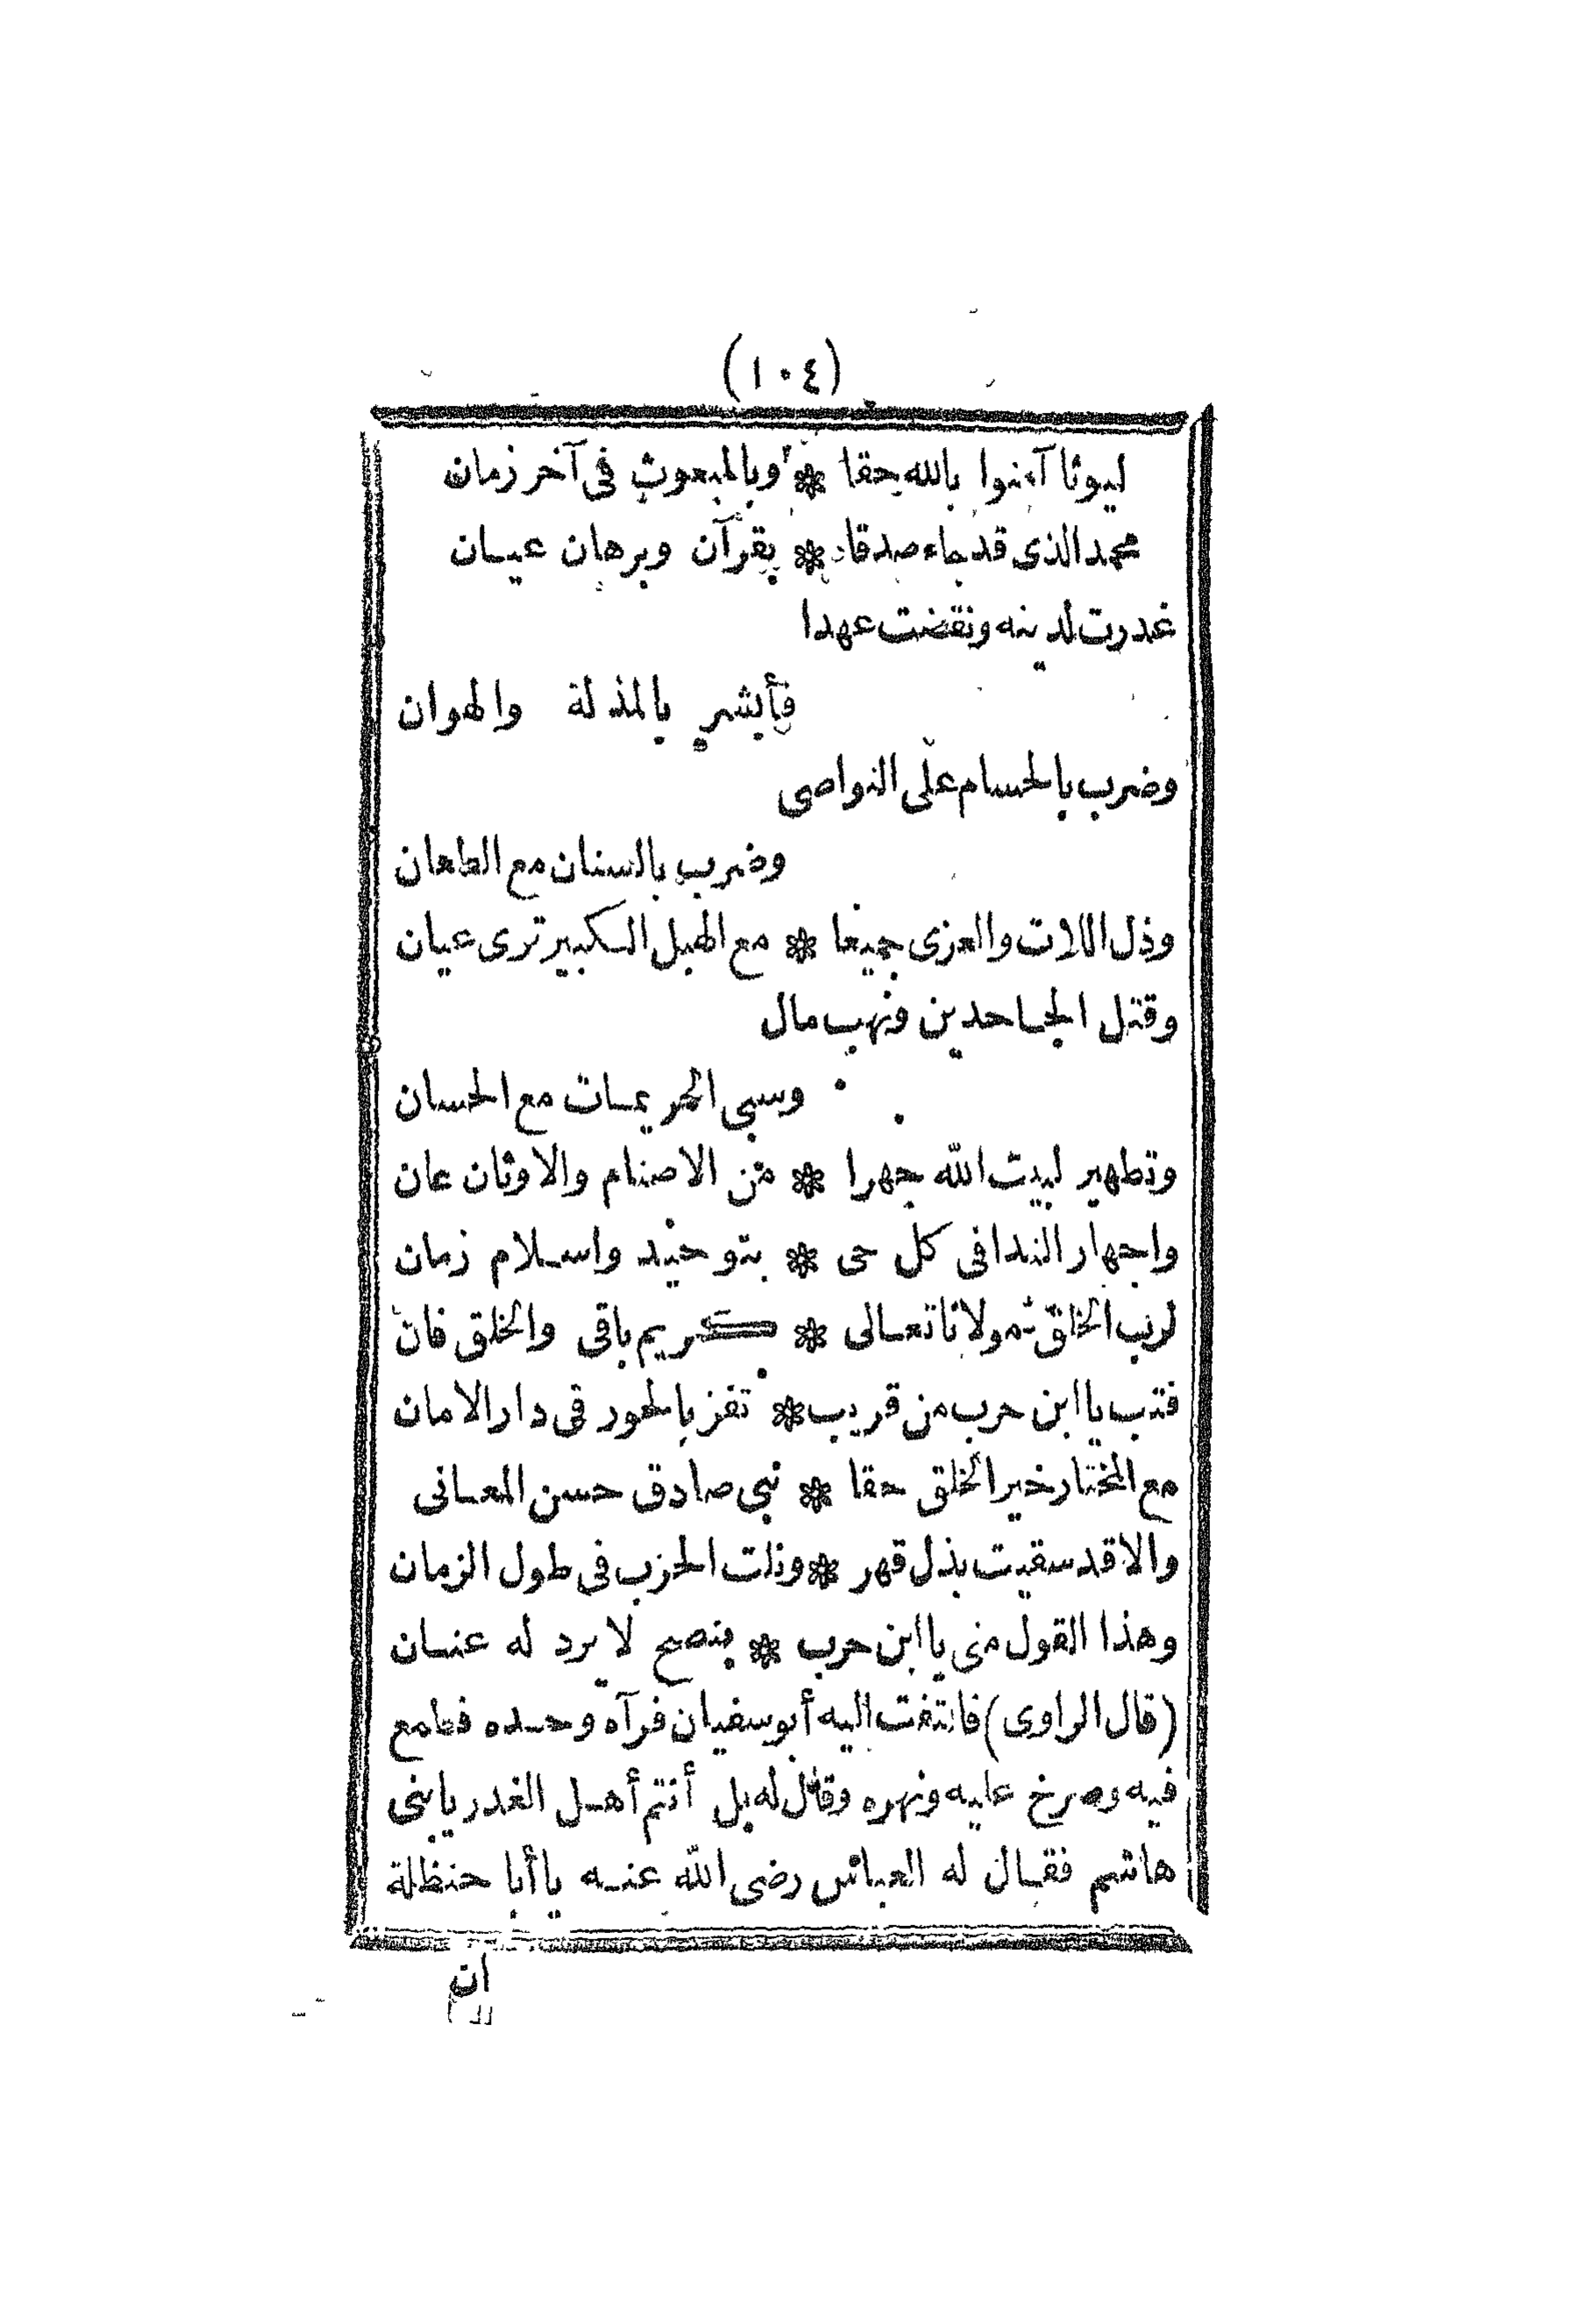 (١٠٤)
ليوثا آمنوا بالله حقا * وبالمبعوث فى آخر زمان
محمد الذى قد جاء صدقا * بقرآن وبرهان عيان
غدرت لدينه ونقضت عهدا
فأبشر بالمذلة والهوان
وضرب بالحسام على النواصى
وضرب بالسنان مع الطعان
وذل اللات والعزى جميعا * مع الهبل الكبير ترى عيان
وقتل الجاحدين ونهب مال
وسبى الحريمات مع الحسان
وتطهير لبيت الله جهرا * من الاصنام والاوثان عان
واجهار الندا فى كل حى * بتوحيد واسلام زمان
لرب الخلق مولانا تعالى * كريم باقى والخلق فان
فتب يا ابن حرب من قريب * تفز بالحور فى دار الامان
مع المختار خير الخلق حقا * نبى صادق حسن المعانى
والا قد سقيت بذل قهر * ونلت الحزب فى طول الزمان
وهذا القول منى يا ابن حرب * بنصح لا يرد له عنان
(قال الراوى) فالتفت اليه أبو سفيان فرآه وحده فطمع
فيه وصرخ عليه ونهره وقال له بل أنتم أهل الغدر يا بنى
هاشم فقال له العباس رضى الله عنه يا أبا حنظلة
ان